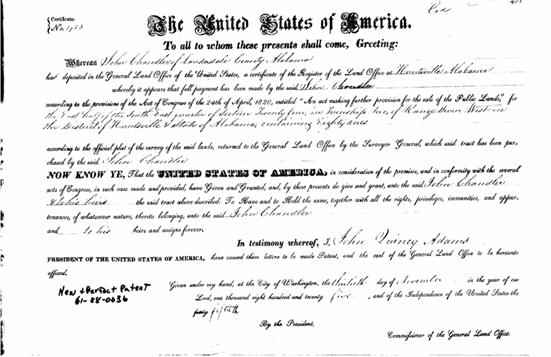 Certificate
No. 1,753
The United States of America.
To all to whom these presents shall come, Greeting:
Whereas John Chandler of Lauderdale County Alabama
has deposited in the General Land Office of the United States, a certificate of the Register of the Land Office at Huntsville Alabama
whereby it appears that full payment has been made by the said John Chandler
according to the provision of the Act of Congress of the 24th of April, 1820, entitled "An act making further provision for the sale of the Public Lands," for
the East half of the South East quarter of Section Twenty four, in Township two, of Range Seven West in
the District of Huntsville & State of Alabama, containing Eighty acres
according to the official plat of the survey of the said lands, returned to the General Land Office by the Surveyor General, which said tract has been pur-
chased by the said John Chandler
NOW KNOW YE, That the UNITED STATES OF AMERICA, in consideration of the premises, and in conformity with the several
acts of Congress, in such case made and provided, have Given and Granted, and, by these presents do give and grant, unto the said John Chandler
& to his heirs the said tract above described: To Have and to Hold the same, together with all the rights, privileges, immunities, and appur-
tenances, of whatsoever nature, thereto belonging, unto the said John Chandler
and to his heirs and assigns forever.
In testimony whereof, I, John Quincy Adams
PRESIDENT OF THE UNITED STATES OF AMERICA, have caused these letters to be made Patent, and the seal of the General Land Office to be hereunto
affixed.
Given under my hand, at the City of Washington, the thirtieth day of November in the year of our
Lord, one thousand eight hundred and twenty five, and of the Independence of the United States the
forty fiftieth
New & Perfect Patent
61-88-0036
By the President,
Commissioner of the General Land Office.